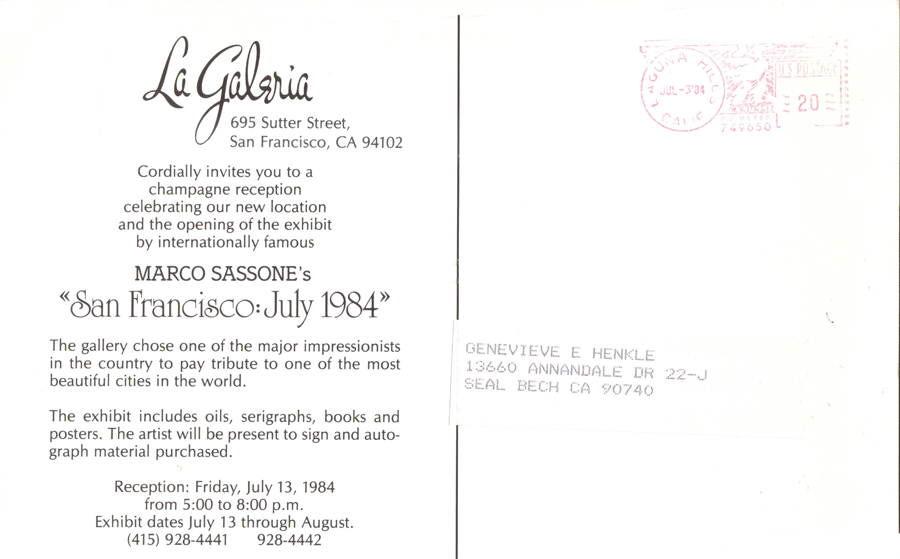 La Galeria
695 Sutter Street,
San Francisco, CA 94102
Cordially invites you to a
champagne reception
celebrating our new location
and the opening of the exhibit
by internationally famous
MARCO SASSONE's
“San Francisco: July 1984”
The gallery chose one of the major impressionists
in the country to pay tribute to one of the most
beautiful cities in the world.
The exhibit includes oils, serigraphs, books and
posters. The artist will be present to sign and auto-
graph material purchased.
Reception: Friday, July 13, 1984
from 5:00 to 8:00 p.m.
Exhibit dates July 13 through August.
(415) 928-4441 928-4442
LAGUNA HILLS
JUL -3'84
CALIF
U.S. POSTAGE
20
749650
GENEVIEVE E HENKLE
13660 ANNANDALE DR 22-J
SEAL BECH CA 90740